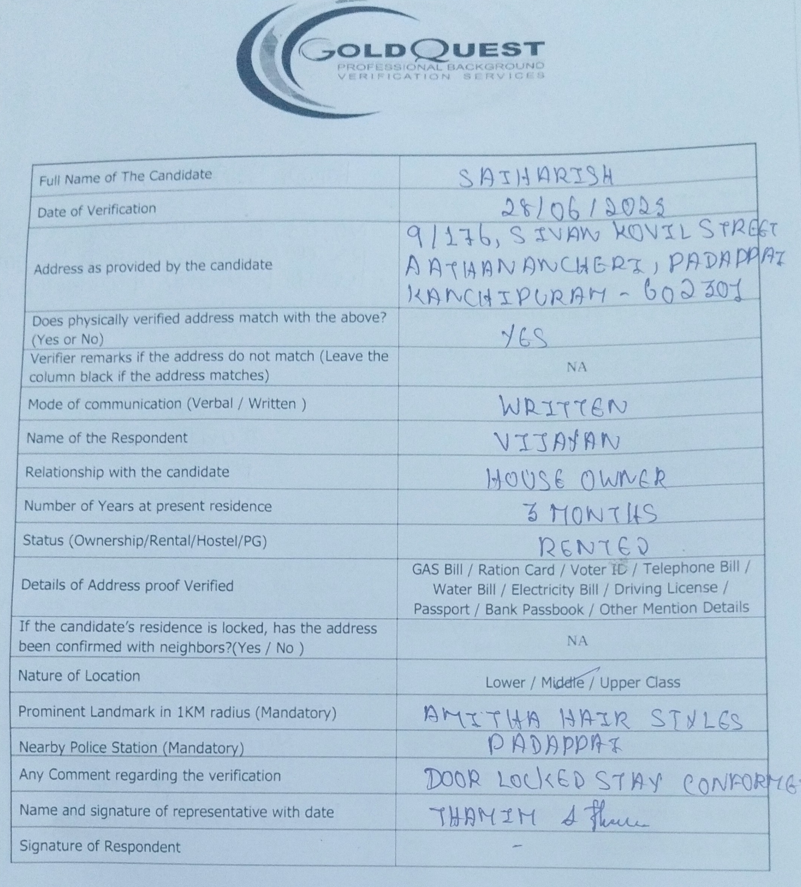 GOLDQUEST
PROFESSIONAL BACKGROUND
VERIFICATION SERVICES
Full Name of The Candidate SAIHARISH
Date of Verification 28/06/2023
9/176, SIVAN KOVIL STREET
Address as provided by the candidate AATHANANCHERI, PADAPPAI
KANCHIPURAM - 602301
Does physically verified address match with the above?
(Yes or No) YES
Verifier remarks if the address do not match (Leave the
column black if the address matches) NA
Mode of communication (Verbal / Written ) WRITTEN
Name of the Respondent VIJAYAN
Relationship with the candidate HOUSE OWNER
Number of Years at present residence 3 MONTHS
Status (Ownership/Rental/Hostel/PG) RENTED
GAS Bill / Ration Card / Voter ID / Telephone Bill /
Details of Address proof Verified Water Bill / Electricity Bill / Driving License /
Passport / Bank Passbook / Other Mention Details
If the candidate's residence is locked, has the address
been confirmed with neighbors?(Yes / No ) NA
Nature of Location Lower / Middle / Upper Class
Prominent Landmark in 1KM radius (Mandatory) AMITHA HAIR STYLES
Nearby Police Station (Mandatory) PADAPPAI
Any Comment regarding the verification DOOR LOCKED STAY CONFORME
Name and signature of representative with date THAMIM
Signature of Respondent -